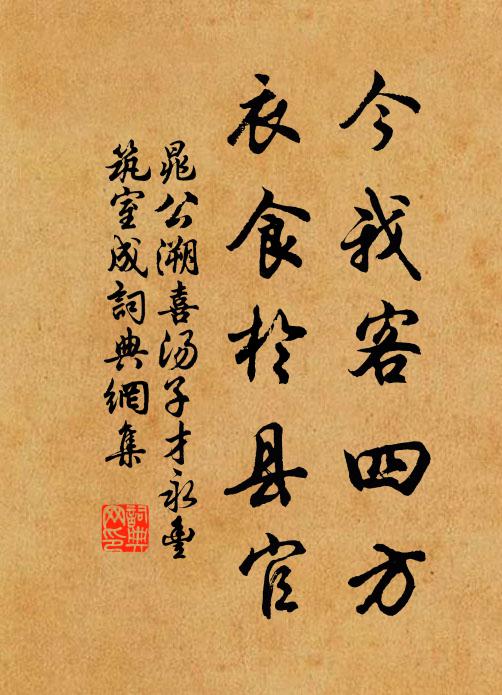 今我客四方
衣食於县官
晁公溯喜汤子才永豊
筑室成詞典網集
詞典网印